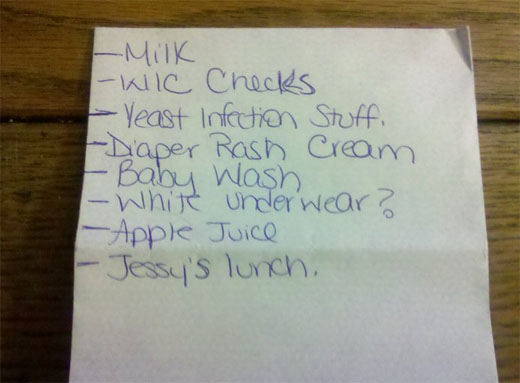 - Milk
- WIC Checks
- Yeast Infection Stuff.
- Diaper Rash Cream
- Baby Wash
- White underwear?
- Apple Juice
- Jessy's lunch.